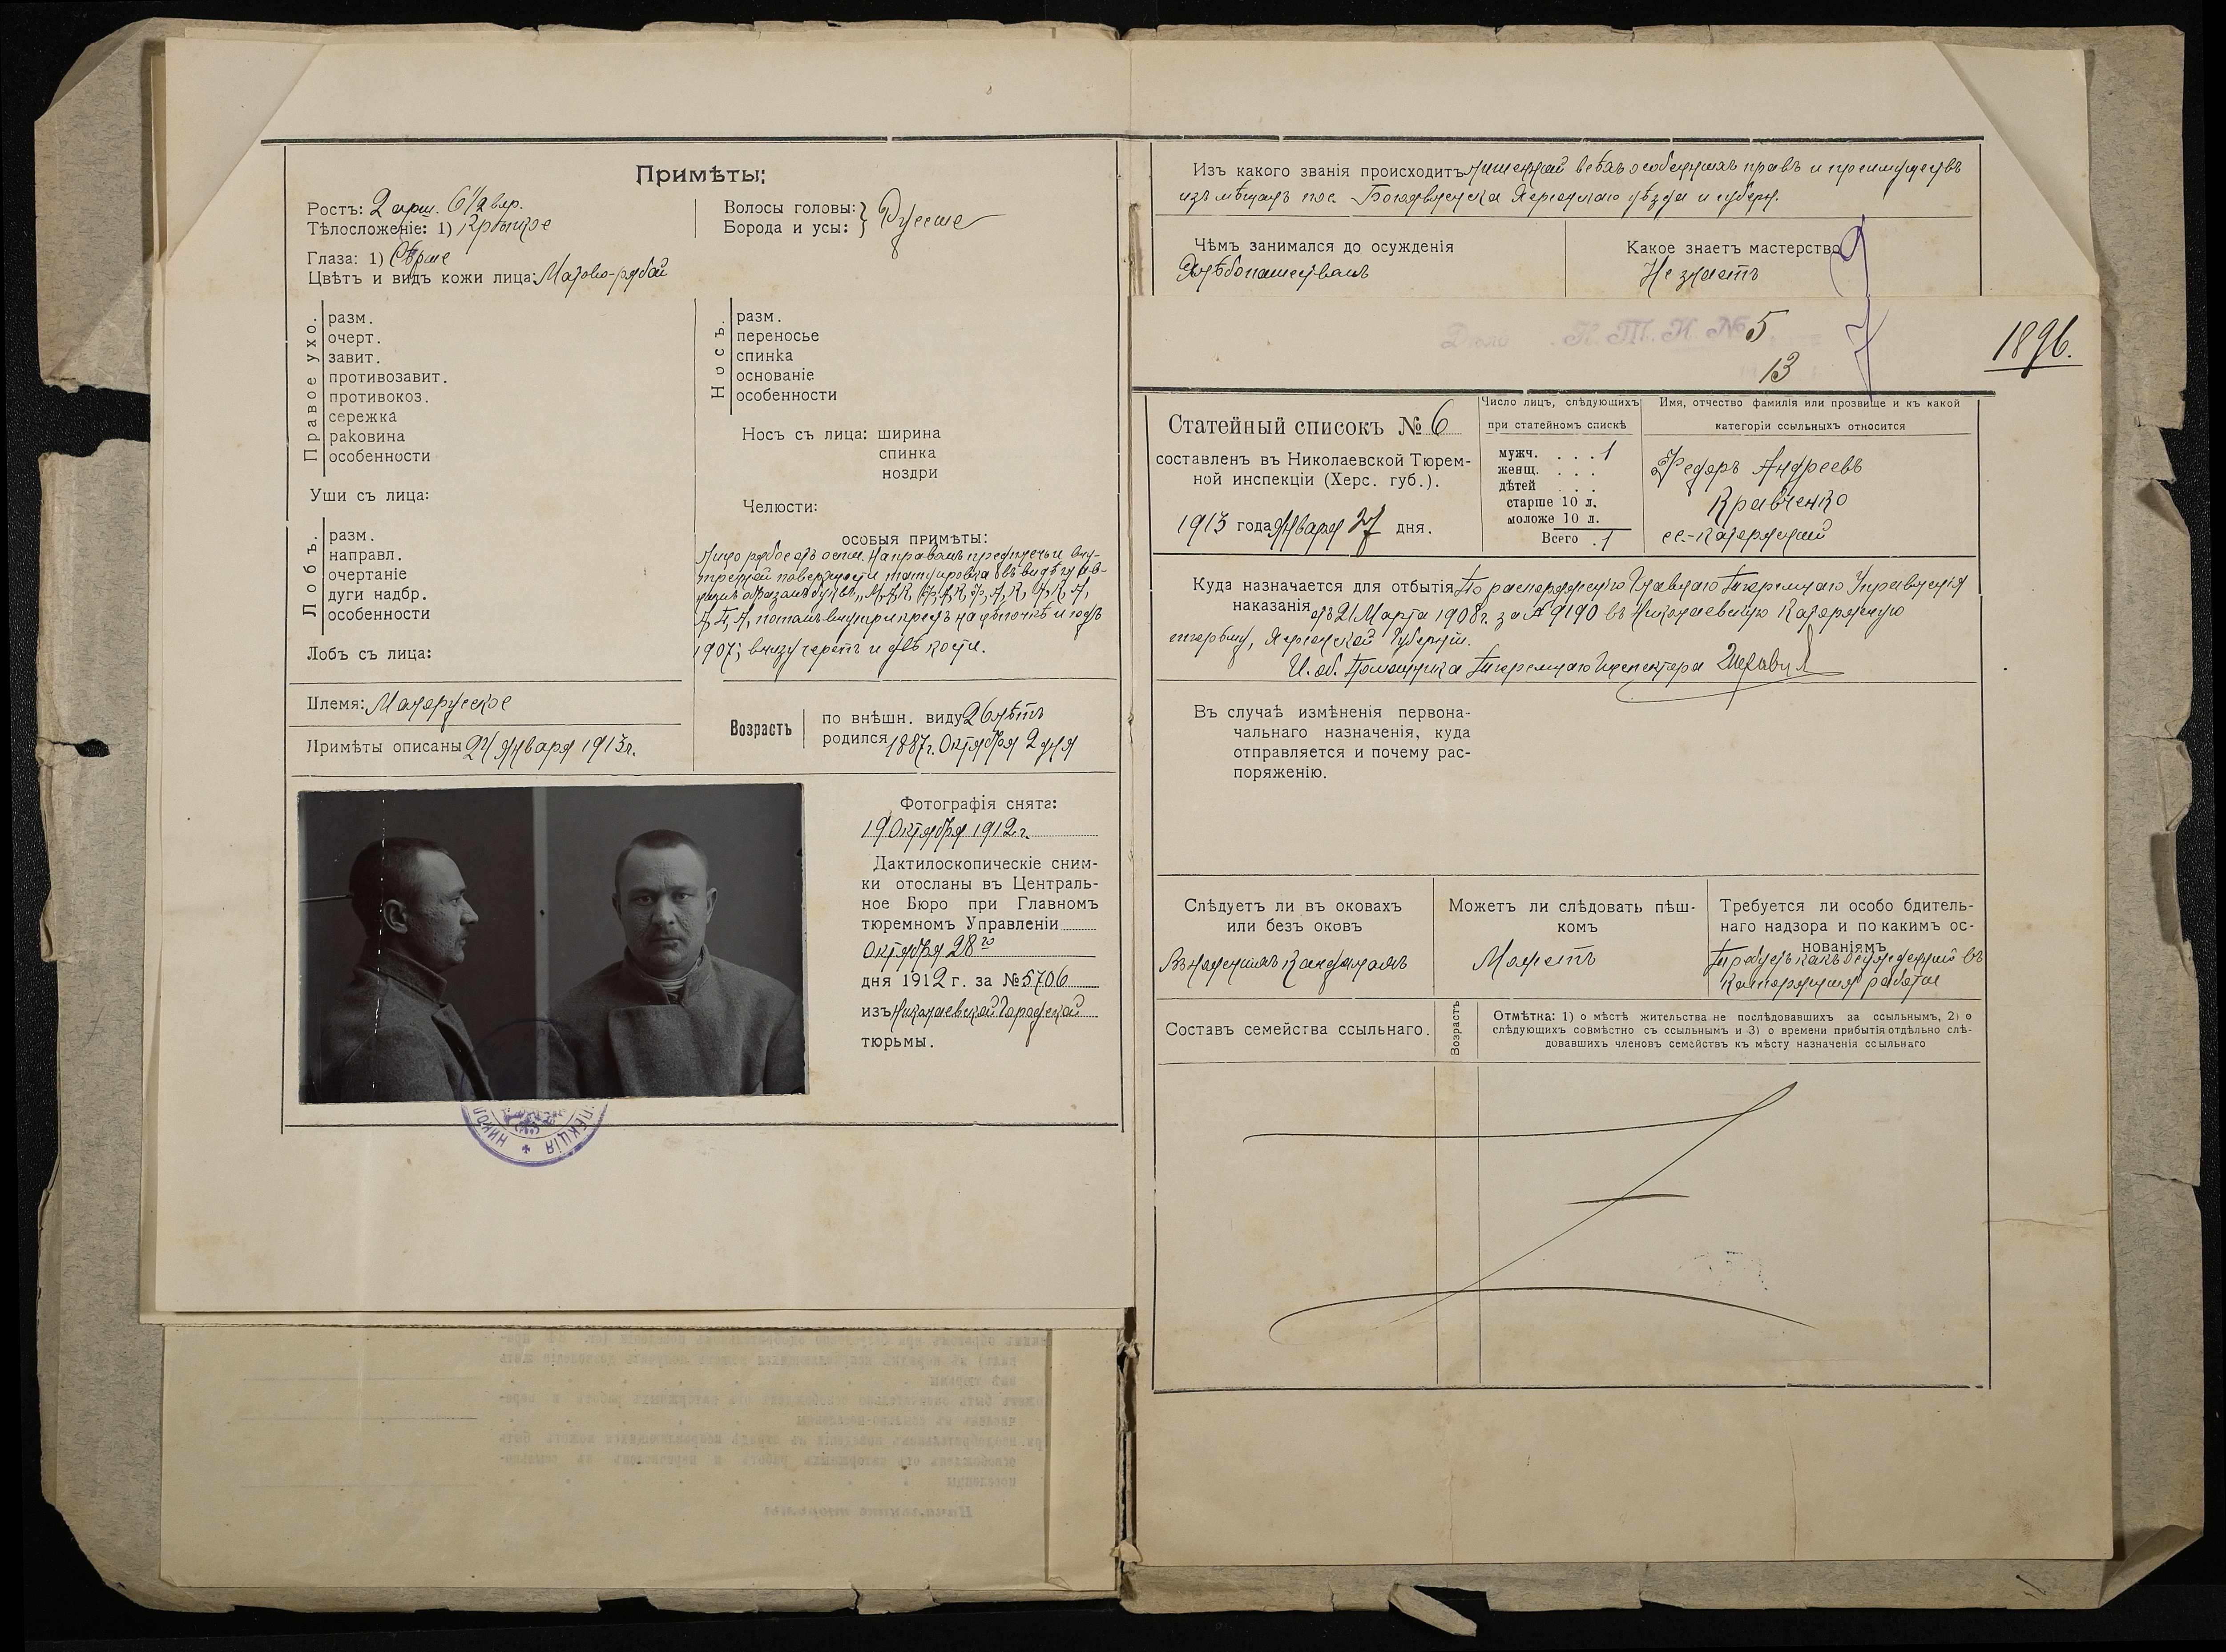 Примѣты:
Ростъ: 2 арш. 6 1/2 вер.
Тѣлосложеніе: 1) Крѣпкое
Волосы головы: }
Борода и усы: } Русые
Глаза: 1) Сѣрые
Цвѣтъ и видъ кожи лица: Матово-рябой
Правое ухо.
разм.
очерт.
завит.
противозавит.
противокоз.
сережка
раковина
особенности
Носъ.
разм.
переносье
спинка
основаніе
особенности
Носъ съ лица: ширина
спинка
ноздри
Уши съ лица:
Челюсти:
Лобъ.
разм.
направл.
очертаніе
дуги надбр.
особенности
Лобъ съ лица:
особыя примѣты:
Лицо рябое отъ оспы. На правомъ предплечьи вну-
тренней поверхности татуировка въ видѣ
образомъ буквъ, М, А, К, Ф, А, К, Ф, А, К,
потомъ внутри крестъ на цѣпочкѣ и годъ
1907; внизу черепъ и двѣ кости.
Племя: Малорусское
Примѣты описаны 24 Января 1913 г.
Возрастъ
по внѣшн. виду 26 лѣтъ
родился 1887 г. Октября 2 дня
Фотографія снята:
19 Октября 1912 г.
Дактилоскопическіе сним-
ки отосланы въ Централь-
ное Бюро при Главномъ
тюремномъ Управленіи
Октября 28го
дня 1912 г. за № 5706
изъ Николаевской Городской
тюрьмы.
НИКОЛ
ПЕКЦІЯ
Изъ какого званія происходитъ Лишенный всѣхъ особенныхъ правъ и преимуществъ
изъ мѣщанъ пос. Богоявленска Херсонскаго уѣзда и губерн.
Чѣмъ занимался до осужденія
Хлѣбопашествомъ
Какое знаетъ мастерство
Не знаетъ
Дѣло Н. Т. И. № 5
13
1896.
Статейный списокъ № 6
составленъ въ Николаевской Тюрем-
ной инспекціи (Херс. губ.).
1913 года Января 27 дня.
Число лицъ, слѣдующихъ
при статейномъ спискѣ
мужч. . . . 1
женщ. . . .
дѣтей . . .
старше 10 л.
моложе 10 л.
Всего . 1
Имя, отчество фамилія или прозвище и къ какой
категоріи ссыльныхъ относится
Федоръ Андреевъ
Кравченко
сс.-каторжный
Куда назначается для отбытія По распоряженію Главнаго Тюремнаго Управленія
наказанія отъ 21 Марта 1908 г. за № 9190 въ Николаевскую Каторжную
тюрьму, Херсонской Губерніи.
И. об. Помощника Тюремнаго Инспектора
Въ случаѣ измѣненія первона-
чальнаго назначенія, куда
отправляется и почему рас-
поряженію.
Слѣдуетъ ли въ оковахъ
или безъ оковъ
Въ ножныхъ Кандалахъ
Можетъ ли слѣдовать пѣш-
комъ
Можетъ
Требуется ли особо бдитель-
наго надзора и по какимъ ос-
нованіямъ
Требуетъ какъ осужденный въ
Каторжныя работы
Составъ семейства ссыльнаго.
Возрастъ
Отмѣтка: 1) о мѣстѣ жительства не послѣдовавшихъ за ссыльнымъ, 2) о
слѣдующихъ совмѣстно съ ссыльнымъ и 3) о времени прибытія отдѣльно слѣ-
довавшихъ членовъ семействъ къ мѣсту назначенія ссыльнаго